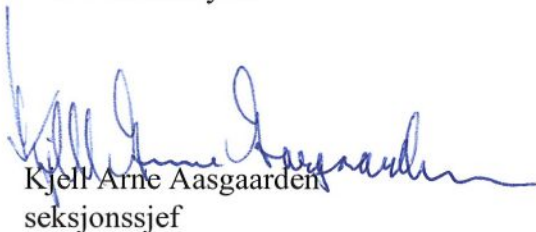 Kjell Arne Aasgaarden
Kjell Arne Aasgaarden
seksjonssjef